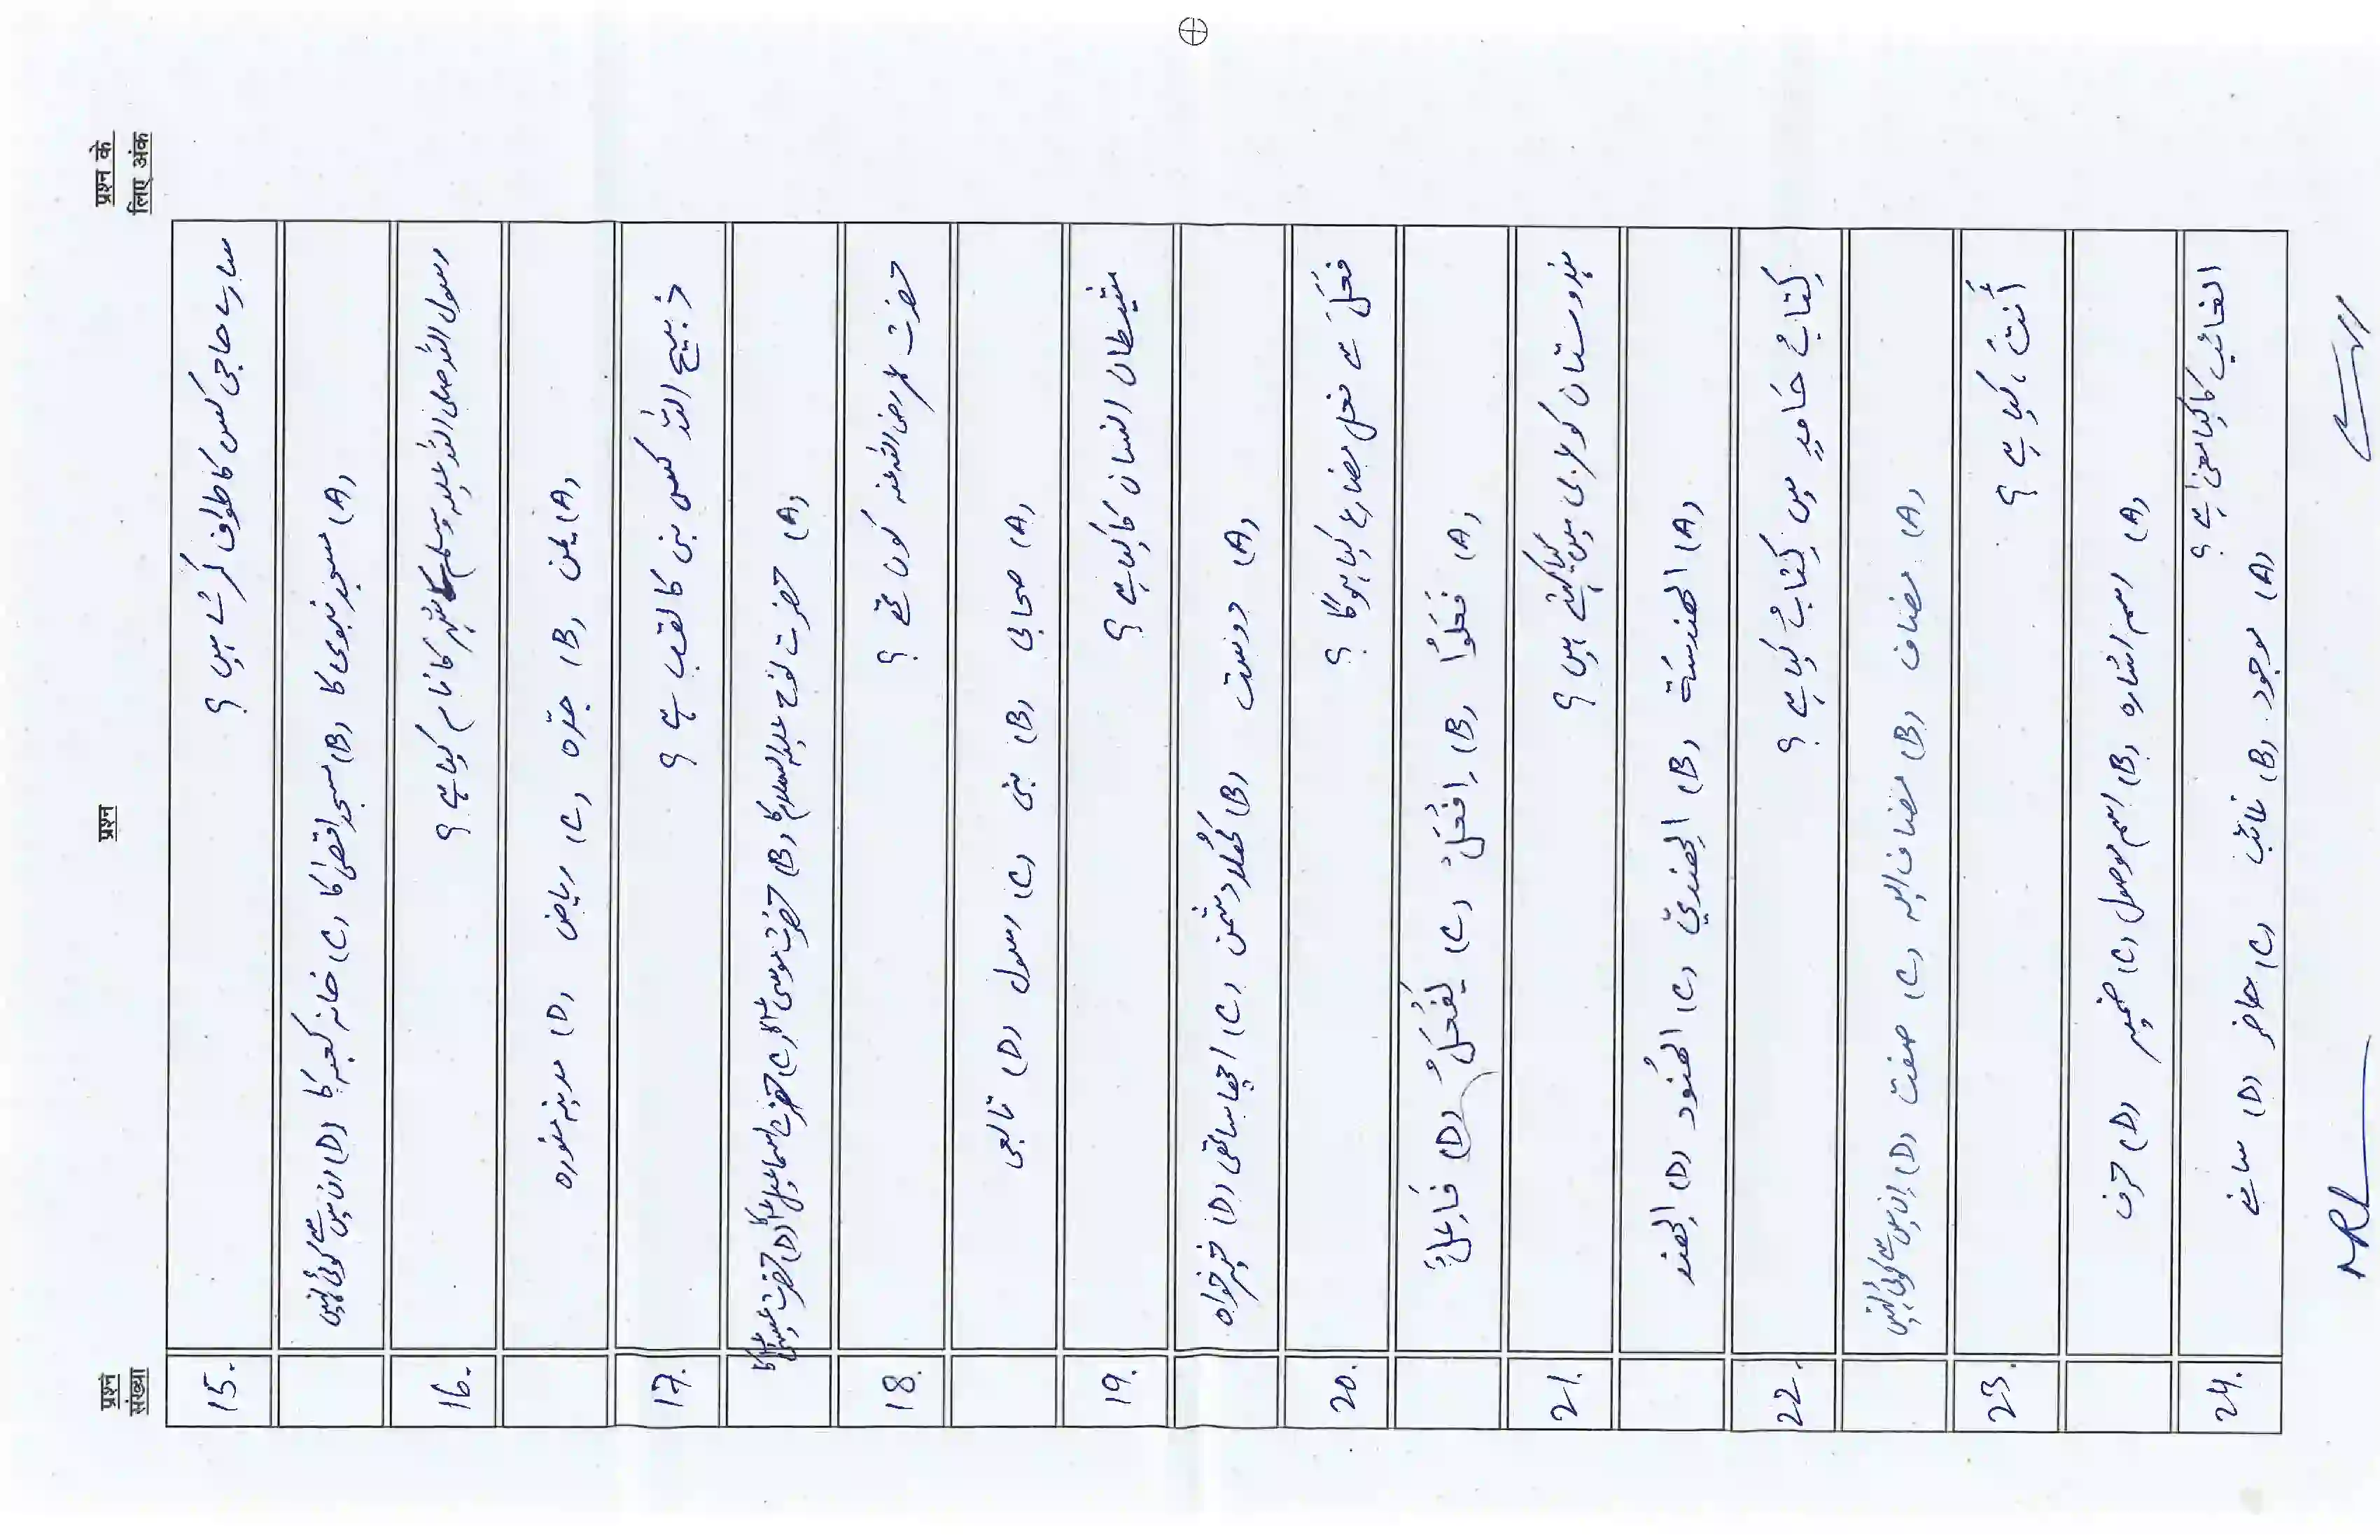 प्रश्न संख्या
प्रश्न
प्रश्न के लिए अंक
15. سارے حاجی کس کا طواف کرتے ہیں ؟
(A) مسجد نبوی کا (B) مسجد اقصٰی کا (C) خانہ کعبہ کا (D) ان میں سے کوئی نہیں
16. رسول اللہ صلی اللہ علیہ وسلم کے شہر کا نام کیا ہے ؟
(A) یمن (B) جدّہ (C) ریاض (D) مدینہ منورہ
17. ذبیح اللہ کس نبی کا لقب ہے ؟
(A) حضرت نوح علیہ السلام کا (B) حضرت موسیٰؑ کا (C) حضرت اسماعیلؑ کا (D) حضرت عیسیٰؑ کا
18. حضرت عمر رضی اللہ عنہ کون تھے ؟
(A) صحابی (B) نبی (C) رسول (D) تابعی
19. شیطان انسان کا کیا ہے ؟
(A) دوست (B) کُھلا دشمن (C) اچھا ساتھی (D) خیر خواہ
20. فَعَلَ سے فعل مضارع کیا ہوگا ؟
(A) فَعَلُوْا (B) اِفْعَلْ (C) يَفْعَلُ (D) فَاعِلٌ
21. ہندوستان کو عربی میں کیا کہتے ہیں ؟
(A) الھندسَة (B) الھِندیّ (C) الھُنود (D) الھِند
22. کِتابُ حَامِدٍ میں کِتَابُ کیا ہے ؟
(A) مضاف (B) مضاف الیہ (C) صفت (D) ان میں سے کوئی نہیں
23. اَنْتَ، کیا ہے ؟
(A) اسم اشارہ (B) اسم موصول (C) ضمیر (D) حرف
24. الغائب کا کیا معنیٰ ہے ؟
(A) موجود (B) غائب (C) حاضر (D) سامنے